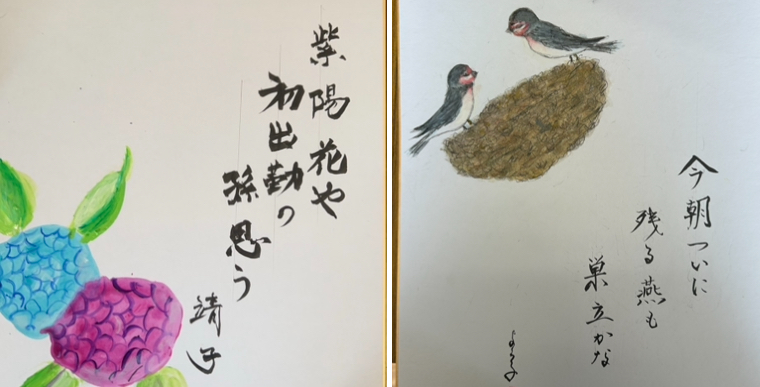 紫陽花や
初出勤の
孫思う
靖子
今朝ついに
残る燕も
巣立かな